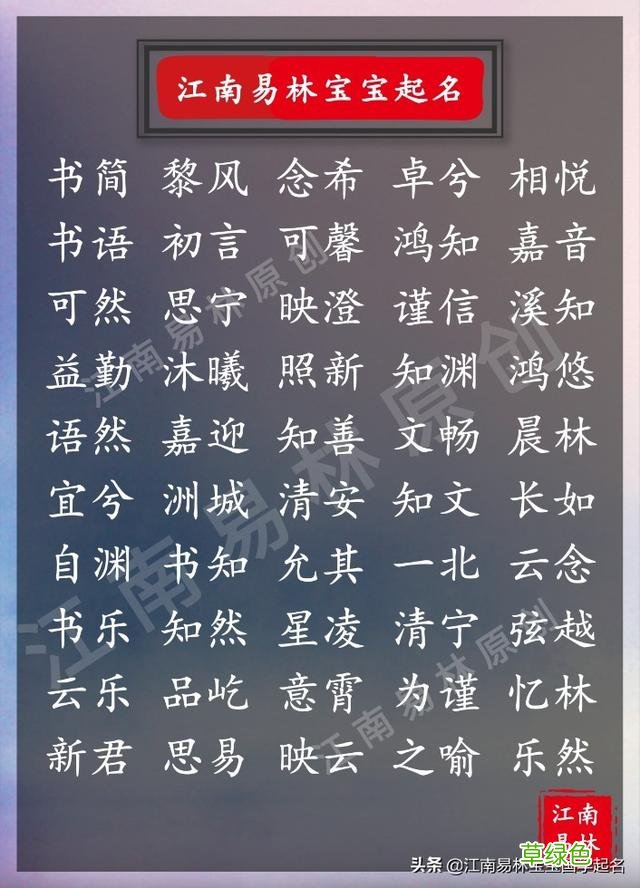 江南易林宝宝起名
书简 黎风 念希 卓兮 相悦
书语 初言 可馨 鸿知 嘉音
可然 思宁 映澄 谨信 溪知
益勤 沐曦 照新 知渊 鸿悠
语然 嘉迎 知善 文畅 晨林
宜兮 洲城 清安 知文 长如
自渊 书知 允其 一北 云念
书乐 知然 星凌 清宁 弦越
云乐 品屹 意霄 为谨 忆林
新君 思易 映云 之喻 乐然
江南易林原创
江南易林原创
江南易林原创
江南
易林
草绿色
头条 @江南易林宝宝国学起名